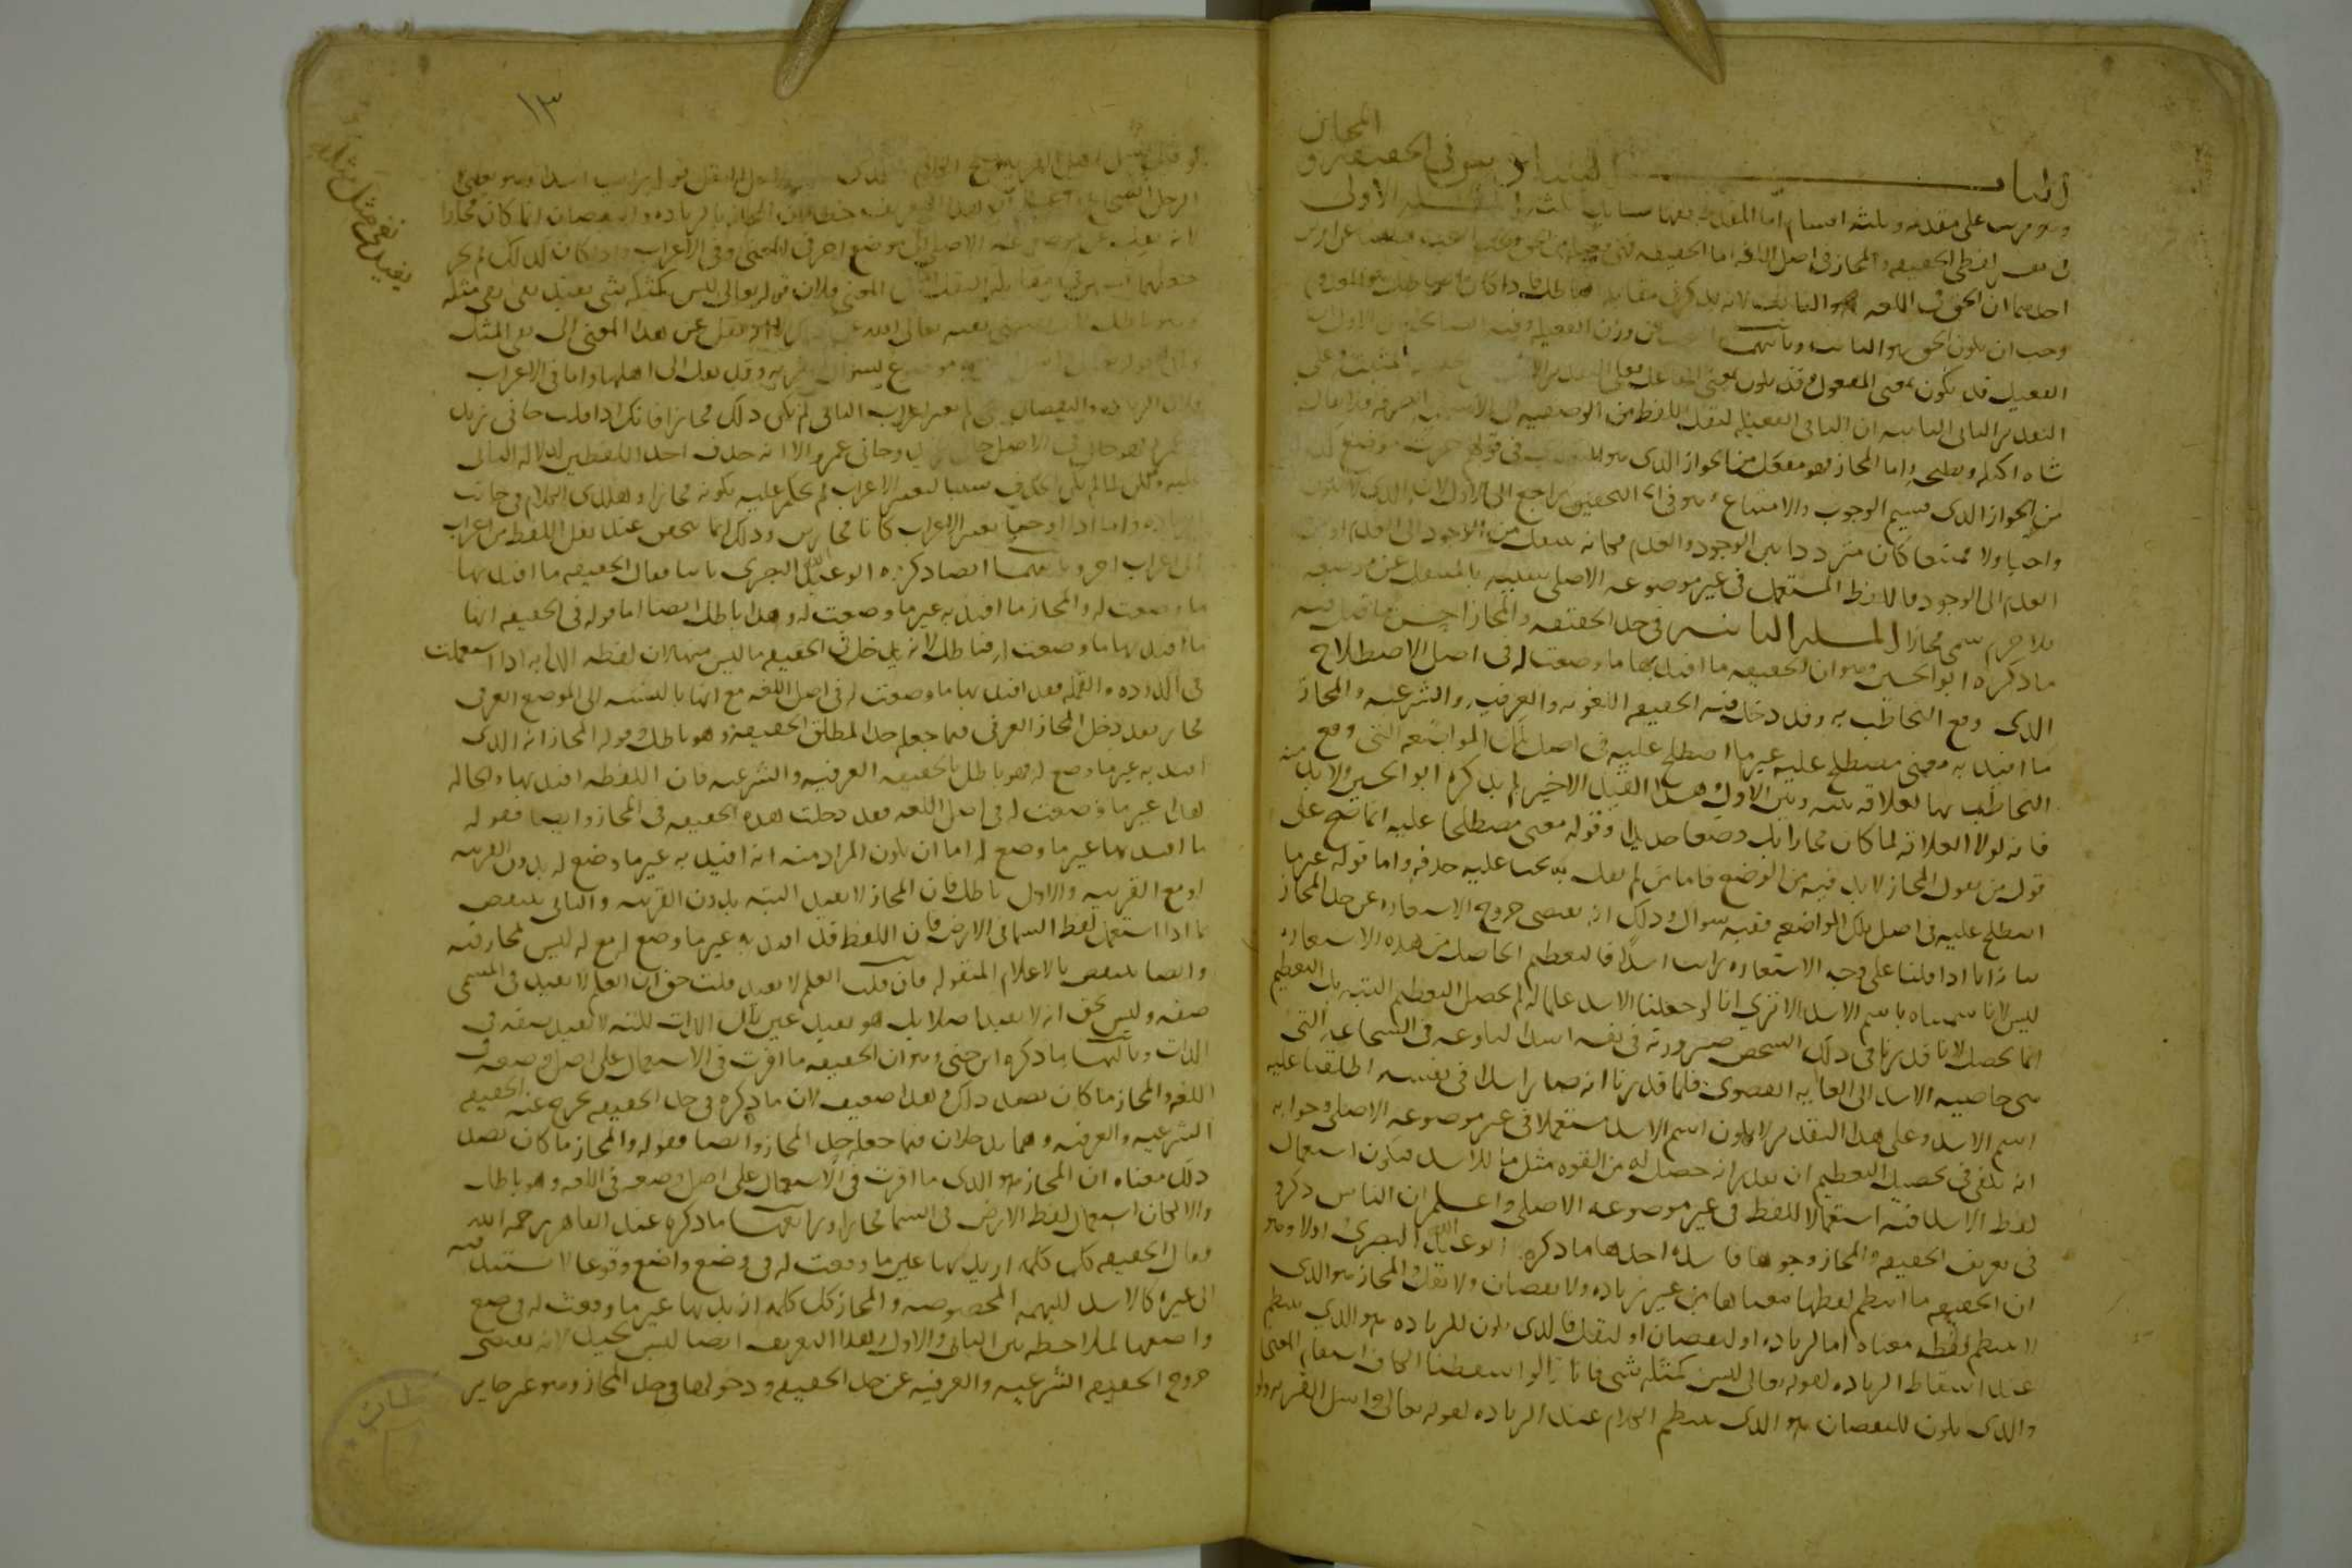 الباب السادس في الحقيقة و المجاز
وهو مرتب على مقدمه وثلثه اقسام اما المقدمه ففيها مسايل ثلثه المسله الاولى
في تفسير لفظى الحقيقه والمجاز فى اصل اللغه اما الحقيقه فهى
احدهما ان الحق فى اللغه هو الثابت لانه يذكر فى مقابله الباطل فاذا كان الباطل هو المعدوم
وجب ان يكون الحق هو الثابت وثانيهما وزن الفعيله وفيه
الفعيل قد يكون بمعنى المفعول وقد يكون بمعنى الفاعل فعلى التقدير الاول المثبته وعلى
التقدير الثانى الثابته ان الثانى الفعيله لنقل اللفظ من الوصفيه الى الاسميه الصرفه فلا يقال
شاه اكيله ونطيحه واما المجاز فهو مفعل من الجواز الذى هو التعدى فى قولهم جزت موضع كذا
من الجواز الذى قسيم الوجوب والامتناع وهو فى التحقيق راجع الى الاول لان الذى لا يكون
واجبا ولا ممتنعا كان مترددا بين الوجود والعدم فكانه ينتقل من الوجود الى العدم او من
العدم الى الوجود فاللفظ المستعمل فى غير موضوعه الاصلى شبيه بالمنتقل عن موضعه
فلا جرم سمى مجازا المسله الثانيه فى حد الحقيقه والمجاز احسن ما قيل فيه
ما ذكره ابو الحسين وهو ان الحقيقه ما افيد بها ما وضعت له فى اصل الاصطلاح
الذى وقع التخاطب به وقد دخل فيه الحقيقه اللغويه والعرفيه والشرعيه والمجاز
ما افيد به معنى مصطلح عليه غير ما اصطلح عليه فى اصل تلك المواضعه التى وقع
التخاطب بها لعلاقه بينه وبين الاول وهذا القيد الاخير لم يذكره ابو الحسين ولا بد منه
فانه لولا العلاقه لما كان مجازا بل وضعا جديدا وقوله معنى مصطلحا عليه انما صح على
قول من يقول المجاز لا بد فيه من الوضع فاما من لم يقل به يجب عليه حذفه واما قوله غير ما
اصطلح عليه فى اصل تلك المواضعه ففيه سوال وذلك انه يقتضى خروج الاستعاره عن حد المجاز
بيانه انا اذا قلنا على وجه الاستعاره رايت اسدا فالتعظيم الحاصل من هذه الاستعاره
ليس لانا سميناه باسم الاسد الا ترى انا لو جعلنا الاسد علما له لم يحصل التعظيم البته بل التعظيم
انما يحصل لانا قدرنا فى ذلك الشخص صيرورته فى نفسه اسدا لبلوغه فى الشجاعه التى
هى خاصيه الاسد الى الغايه القصوى فلما قدرنا انه صار اسدا فى نفسه اطلقنا عليه
اسم الاسد وعلى هذا التقدير لا يكون اسم الاسد مستعملا فى غير موضوعه الاصلى وجوابه
انه يكفى فى تحصيل التعظيم ان يقدر انه حصل له من القوه مثل ما للاسد فيكون استعمال
لفظ الاسد فيه استعمالا للفظ فى غير موضوعه الاصلى واعلم ان الناس ذكروا
فى تعريف الحقيقه والمجاز وجوها فاسده احدها ما ذكره ابو عبد الله البصرى اولا وهو
ان الحقيقه ما انتظم لفظها معناها من غير زياده ولا نقصان ولا نقل والمجاز هو الذى
لا ينتظم لفظه معناه اما لزياده او لنقصان او لنقل فالذى يكون للزياده هو الذى ينتظم
عند اسقاط الزياده كقوله تعالى ليس كمثله شى فانا لو اسقطنا الكاف استقام المعنى
والذى يكون للنقصان هو الذى ينتظم الكلام عند الزياده كقوله تعالى واسل القريه ولو
١٣
لو قيل واسل اهل القريه صح الكلام والذى لاجل النقل قوله رايت اسدا وهو يعنى
الرجل الشجاع
لانه نقل عن موضوعه الاصلى الى موضوع اخر فى المعنى وفى الاعراب واذا كان كذلك لم يجز
جعلهما قسمين فى مقابله النقل اما فى المعنى فلان قوله تعالى ليس كمثله شى يفيد نفى مثل مثله
وهو باطل نقل عن هذا المعنى الى نفى المثل
موضوع لسوال القريه وقد نقل الى اهلها واما فى الاعراب
فلان الزياده والنقصان متى لم يغيرا اعراب الباقى لم يكن ذلك مجازا فانك اذا قلت جانى زيد
وعمرو فهو جار فى الاصل جانى زيد وجانى عمرو الا انه حذف احد اللفظين لدلاله الثانى
عليه ولكن لما لم يكن الحذف سببا لتغير الاعراب لم يحكم عليه بكونه مجازا وهكذى الكلام فى جانب
الزياده واما اذا اوجبا تغير الاعراب كانا مجازين وذلك انما يتحقق عند نقل اللفظ من اعراب
الى اعراب اخر وثانيهما ايضا ذكره ابو عبد الله البصرى ثانيا فقال الحقيقه ما افيد بها
ما وضعت له والمجاز ما افيد به غير ما وضعت له وهذا باطل ايضا اما قوله فى الحقيقه انها
ما افيد بها ما وضعت له فباطل لانه يدخل فى الحقيقه ما ليس منها لان لفظه الدابه اذا استعملت
فى الدوده والنمله فقد افيد بها ما وضعت له فى اصل اللغه مع انها بالنسبه الى الموضع العرفى
مجاز فقد دخل المجاز العرفى فيما جعله حدا لمطلق الحقيقه وهو باطل وقوله المجاز انه الذى
افيد به غير ما وضع له فهو باطل بالحقيقه العرفيه والشرعيه فان اللفظه افيد بها والحاله
هذه غير ما وضعت له فى اصل اللغه فقد دخلت هذه الحقيقه فى المجاز وايضا فقوله
ما افيد بها غير ما وضع له اما ان يكون المراد منه انه افيد به غير ما وضع له بدون القرينه
او مع القرينه والاول باطل فان المجاز لا يفيد البته بدون القرينه والثانى ينتقض
بما اذا استعمل لفظ السما فى الارض فان اللفظ قد افيد به غير ما وضع له مع انه ليس مجاز فيه
وايضا ينتقض بالاعلام المنقوله فان قلت العلم لا يفيد قلت حق ان العلم لا يفيد فى المسمى
صفه وليس بحق انه لا يفيد اصلا بل هو يفيد عين تلك الذات لكنه لا يفيد صفه فى
الذات وثالثها ما ذكره ابن جنى وهو ان الحقيقه ما اقرت فى الاستعمال على اصل وضعه فى
اللغه والمجاز ما كان بضد ذلك وهذا ضعيف لان ما ذكره فى حد الحقيقه يخرج عنه الحقيقه
الشرعيه والعرفيه وهما يدخلان فيما جعله حد المجاز وايضا فقوله والمجاز ما كان بضد
ذلك معناه ان المجاز هو الذى ما اقرت فى الاستعمال على اصل وضعه فى اللغه وهو باطل
والا لكان استعمال لفظ الارض فى السما مجازا ورابعها ما ذكره عبد القاهر رحمه الله
فقال الحقيقه كل كلمه اريد بها عين ما وقعت له فى وضع واضع وقوعا لا يستند فيه
الى غيره كالاسد للبهيمه المخصوصه والمجاز كل كلمه اريد بها غير ما وقعت له فى وضع
واضعها لملاحظه بين الثانى والاول وهذا التعريف ايضا ليس بجيد لانه يقتضى
خروج الحقيقه الشرعيه والعرفيه عن حد الحقيقه ودخولها فى حد المجاز وهو غير جايز